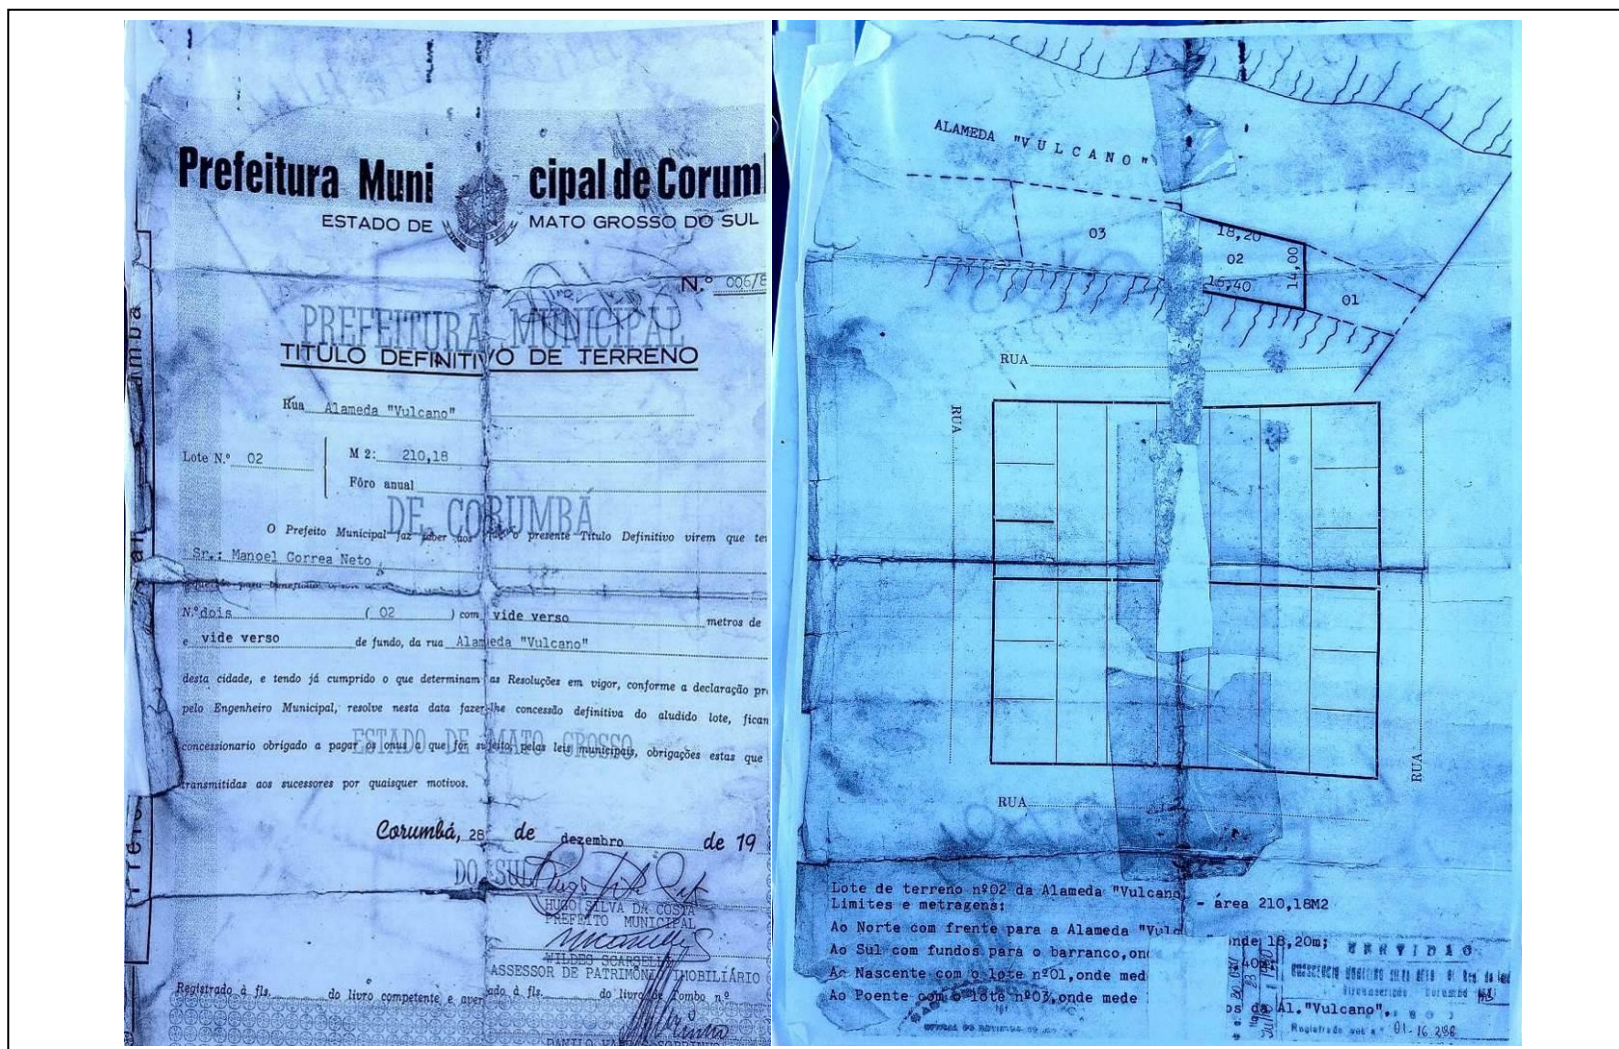 Prefeitura Muni cipal de Corum
ESTADO DE MATO GROSSO DO SUL
N.º 006/8
PREFEITURA MUNICIPAL
TITULO DEFINITIVO DE TERRENO
Rua Alameda "Vulcano"
Lote N.º 02
M 2: 210,18
Fôro anual
DE CORUMBÁ
O Prefeito Municipal faz saber aos que o presente Titulo Definitivo virem que te
Sr.: Manoel Correa Neto
N.º dois ( 02 ) com vide verso metros de
e vide verso de fundo, da rua Alameda "Vulcano"
desta cidade, e tendo já cumprido o que determinam as Resoluções em vigor, conforme a declaração pr
pelo Engenheiro Municipal, resolve nesta data fazer-lhe concessão definitiva do aludido lote, fican
ESTADO DE MATO GROSSO
concessionario obrigado a pagar os onus a que fôr sujeito, pelas leis municipais, obrigações estas que
transmitidas aos sucessores por quaisquer motivos.
Corumbá, 28 de dezembro de 19
DO SUL
HUGO SILVA DA COSTA
PREFEITO MUNICIPAL
WILDES SCARSELLI
ASSESSOR DE PATRIMÔNIO IMOBILIÁRIO
Registrado à fls. do livro competente e aver ado à fls. do livro de Tombo nº
ALAMEDA "VULCANO"
03
18,20
02
14,00
15,40
01
RUA
RUA
RUA
RUA
Lote de terreno nº02 da Alameda "Vulcano - área 210,18M2
Limites e metragens:
Ao Norte com frente para a Alameda "Vulc onde 18,20m;
Ao Sul com fundos para o barranco,ond 40m
Ao Nascente com o lote nº01,onde med
Ao Poente com o lote nº03,onde mede
os da Al."Vulcano".
Registrado sob n.º 01-16.286